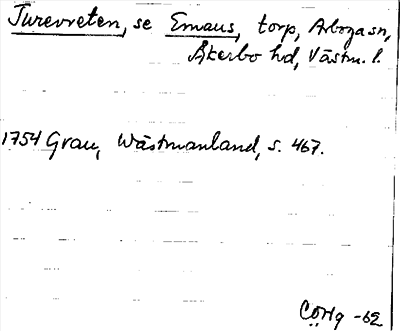 Turevreten, se Emaus, torp, Arboga sn,
Åkerbo hd, Västm. l.
1754 Grau, Wästmanland, s. 467.
CÖHg -62